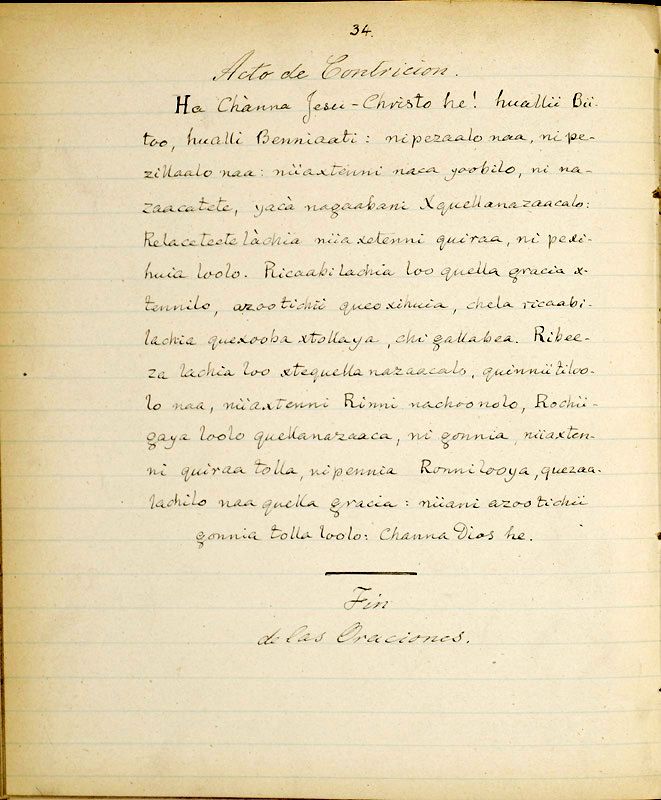 34.
Acto de Contricion.
Ha Chànna Jesu-Christo he! huallii Bii-
too, hualli Benniaati: nipezaalo naa, ni pe-
zillaalo naa: niiaxtenni naca yoobilo, ni na-
zaacatete, yacà nagaabani Xquellanazaacalo:
Relaceteete làchia niia xetenni quiraa, ni pexi-
huia loolo. Ricaabilachia loo quella gracia x-
tennilo, azootichii queoxihuia, chela ricaabi-
lachia quexooba xtollaya, chi gallabea. Ribee-
za lachia loo xtequella nazaacalo, quinniitiloo-
lo naa, niiaxtenni Rinni nachoonolo, Rochii-
gaya loolo quellanazaaca, ni gonnia, niiaxten-
ni quiraa tolla, nipennia Ronnilooya, quezaa-
lachilo naa quella gracia: niiani azootichii
gonnia tolla loolo: Channa Dios he.
Fin
de las Oraciones.